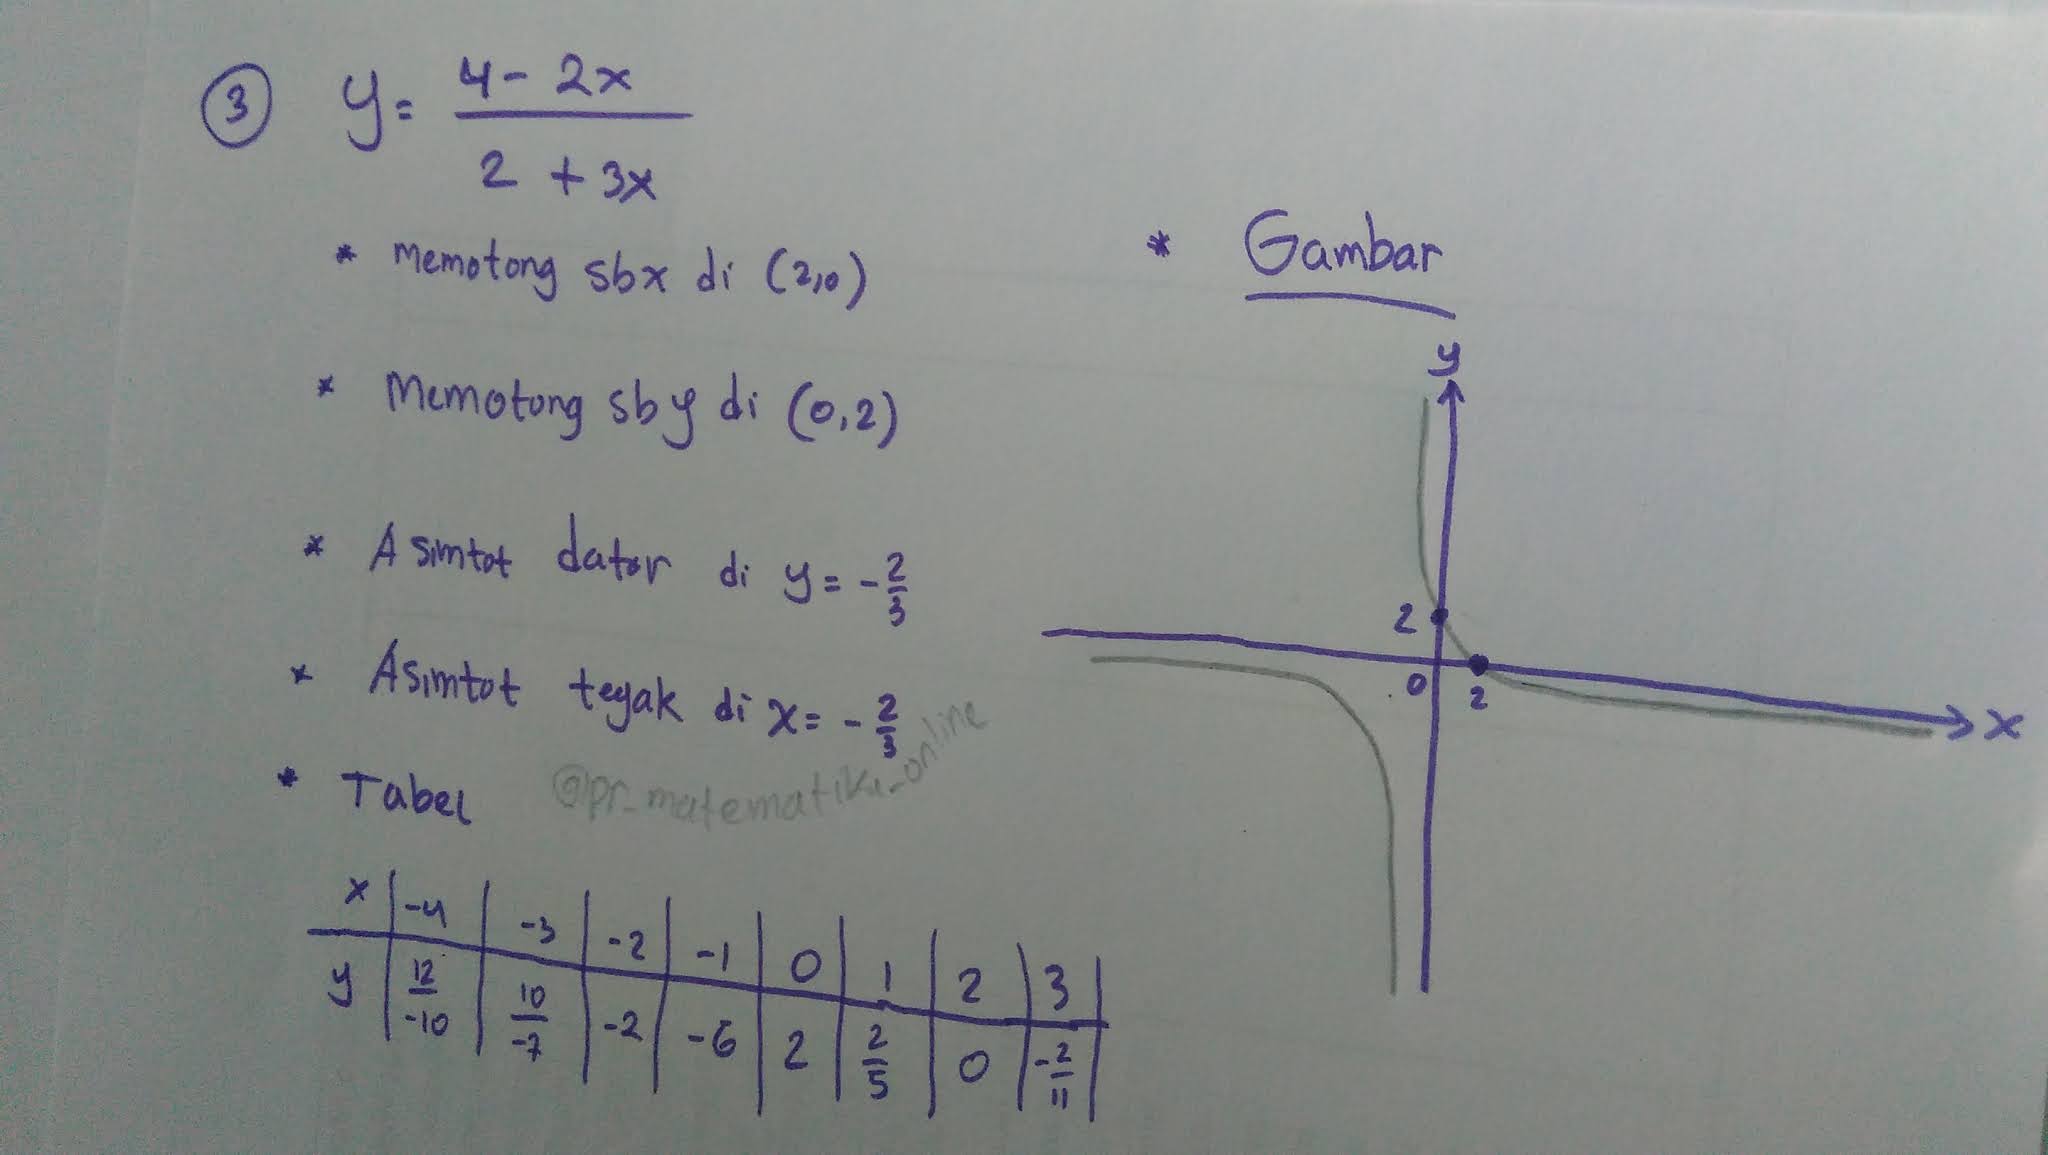 ③ y = 4 - 2x
2 + 3x
* memotong sbx di (2,0)
* Memotong sby di (0,2)
* Asimtot datar di y = -2/3
* Asimtot tegak di x = -2/3
* Tabel
@pr_matematika_online
x | -4 | -3 | -2 | -1 | 0 | 1 | 2 | 3
y | 12/-10 | 10/-7 | -2 | -6 | 2 | 2/5 | 0 | -2/11
* Gambar
y
2
0 2
x